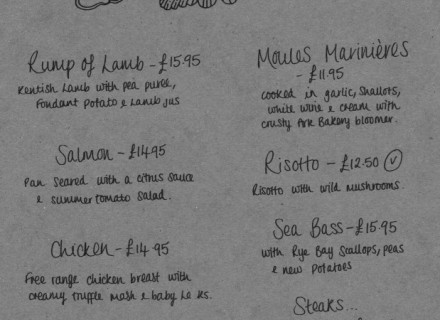 Rump of Lamb - £15.95
Kentish Lamb with pea puree,
Fondant Potato & Lamb jus
Salmon - £14.95
Pan Seared with a citrus sauce
& summer tomato salad.
Chicken - £14.95
Free range chicken breast with
creamy truffle mash & baby le ks.
Moules Marinières
- £11.95
cooked in garlic, shallots,
white wine & cream with
crusty Ark Bakery bloomer.
Risotto - £12.50 V
Risotto with wild mushrooms.
Sea Bass - £15.95
with Rye Bay Scallops, peas
& new potatoes
Steaks...